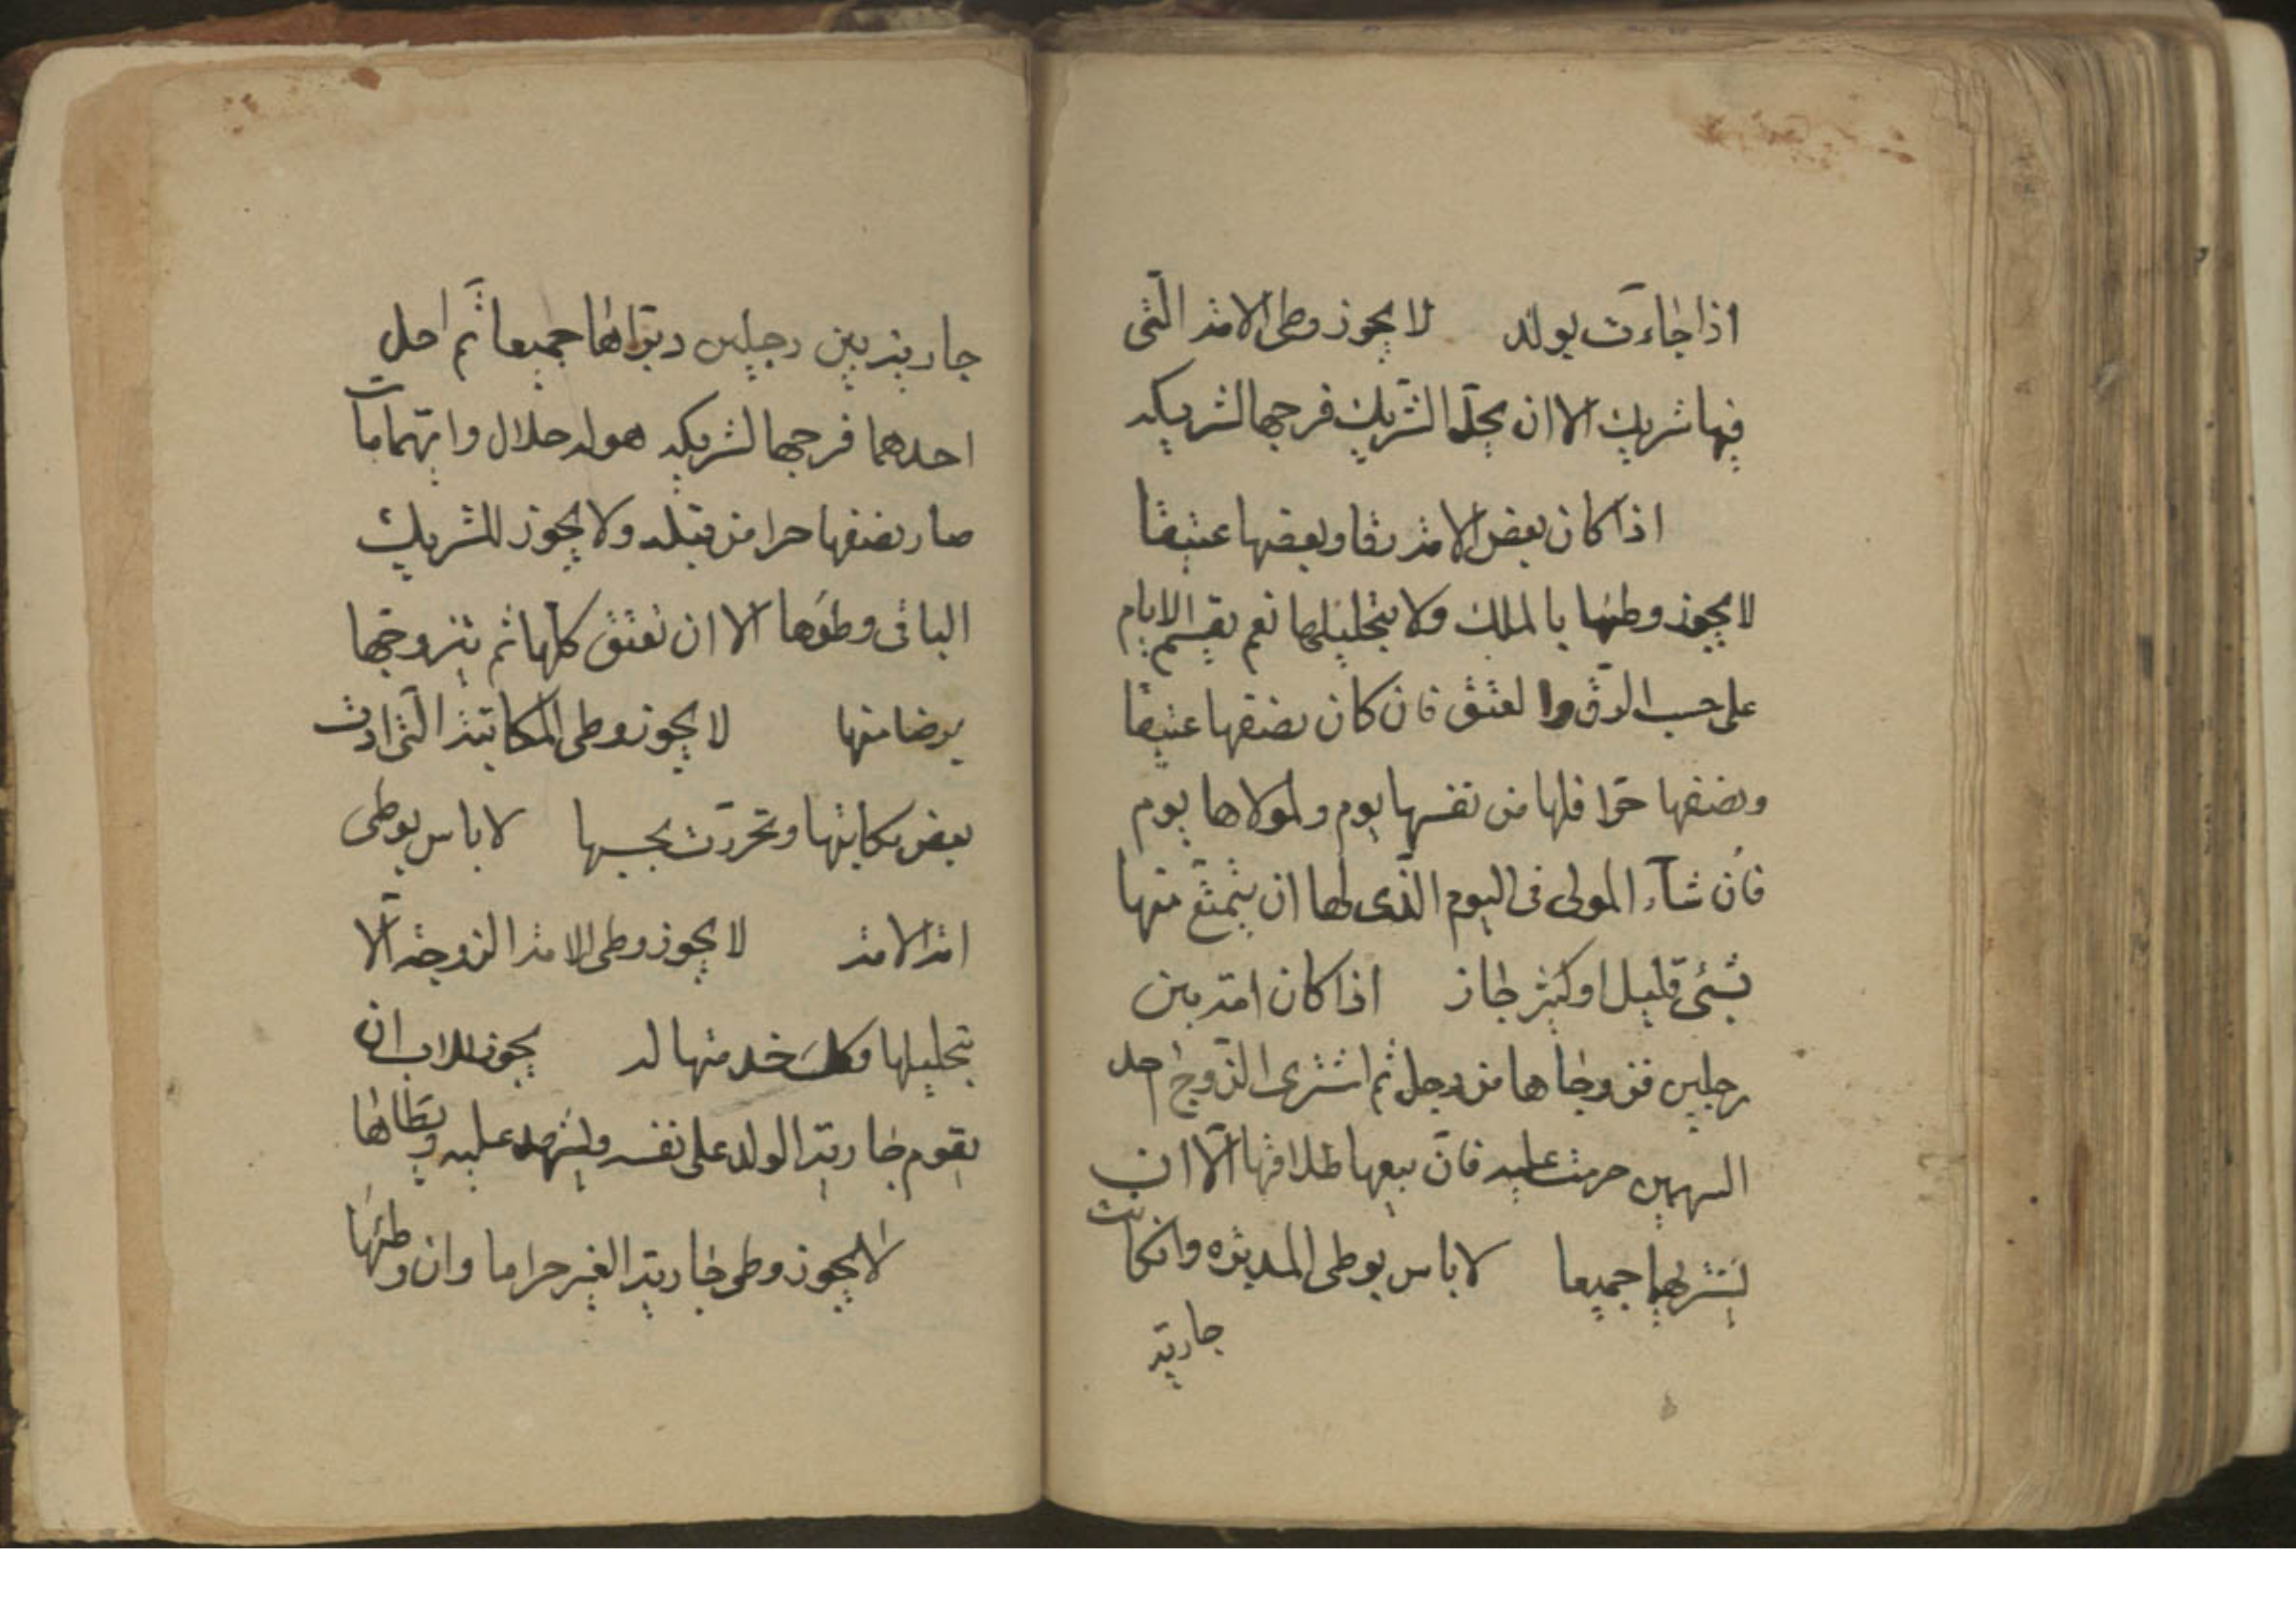 اذا جاءت بولد لا يجوز وطى الامة الّتى
فيها شريك الا ان يحلّ الشريك فرجها لشريكه
اذا كان بعض الامة رقا وبعضها عتيقا
لا يجوز وطئها بالملك ولا بتحليلها نعم يقسم الايام
على حسب الرّق والعتق فان كان نصفها عتيقا
ونصفها حرّا فلها من نفسها يوم ولمولاها يوم
فان شآء المولى فى اليوم الّذى لها ان يتمتّع منها
بشئ قليل او كثير جاز اذا كان امة بين
رجلين فزوجاها من رجل ثم اشترى الزّوج احد
السهمين حرمت عليه فانّ بيعها طلاقها الّا ان
يشتريها جميعا لا باس بوطى المدبرة وان كانت
جارية
جارية بين رجلين دبّراها جميعا ثم احل
احدهما فرجها لشريكه هو له حلال وايّهما مات
صار نصفها حرا من قبله ولا يجوز للشريك
الباقى وطؤها الا ان تعتق كلّها ثم يتزوّجها
برضا منها لا يجوز وطى المكاتبة الّتى ادت
بعض مكاتبتها وتحررّت بحسبها لا باس بوطى
امة الامة لا يجوز وطى الامة الزوجة الّا
بتحليلها وكل خدمتها له يجوز للاب ان
يقوم جارية الولد على نفسه ويشهد عليه ويطاها
لا يجوز وطى جارية الغير حراما وان وطئها